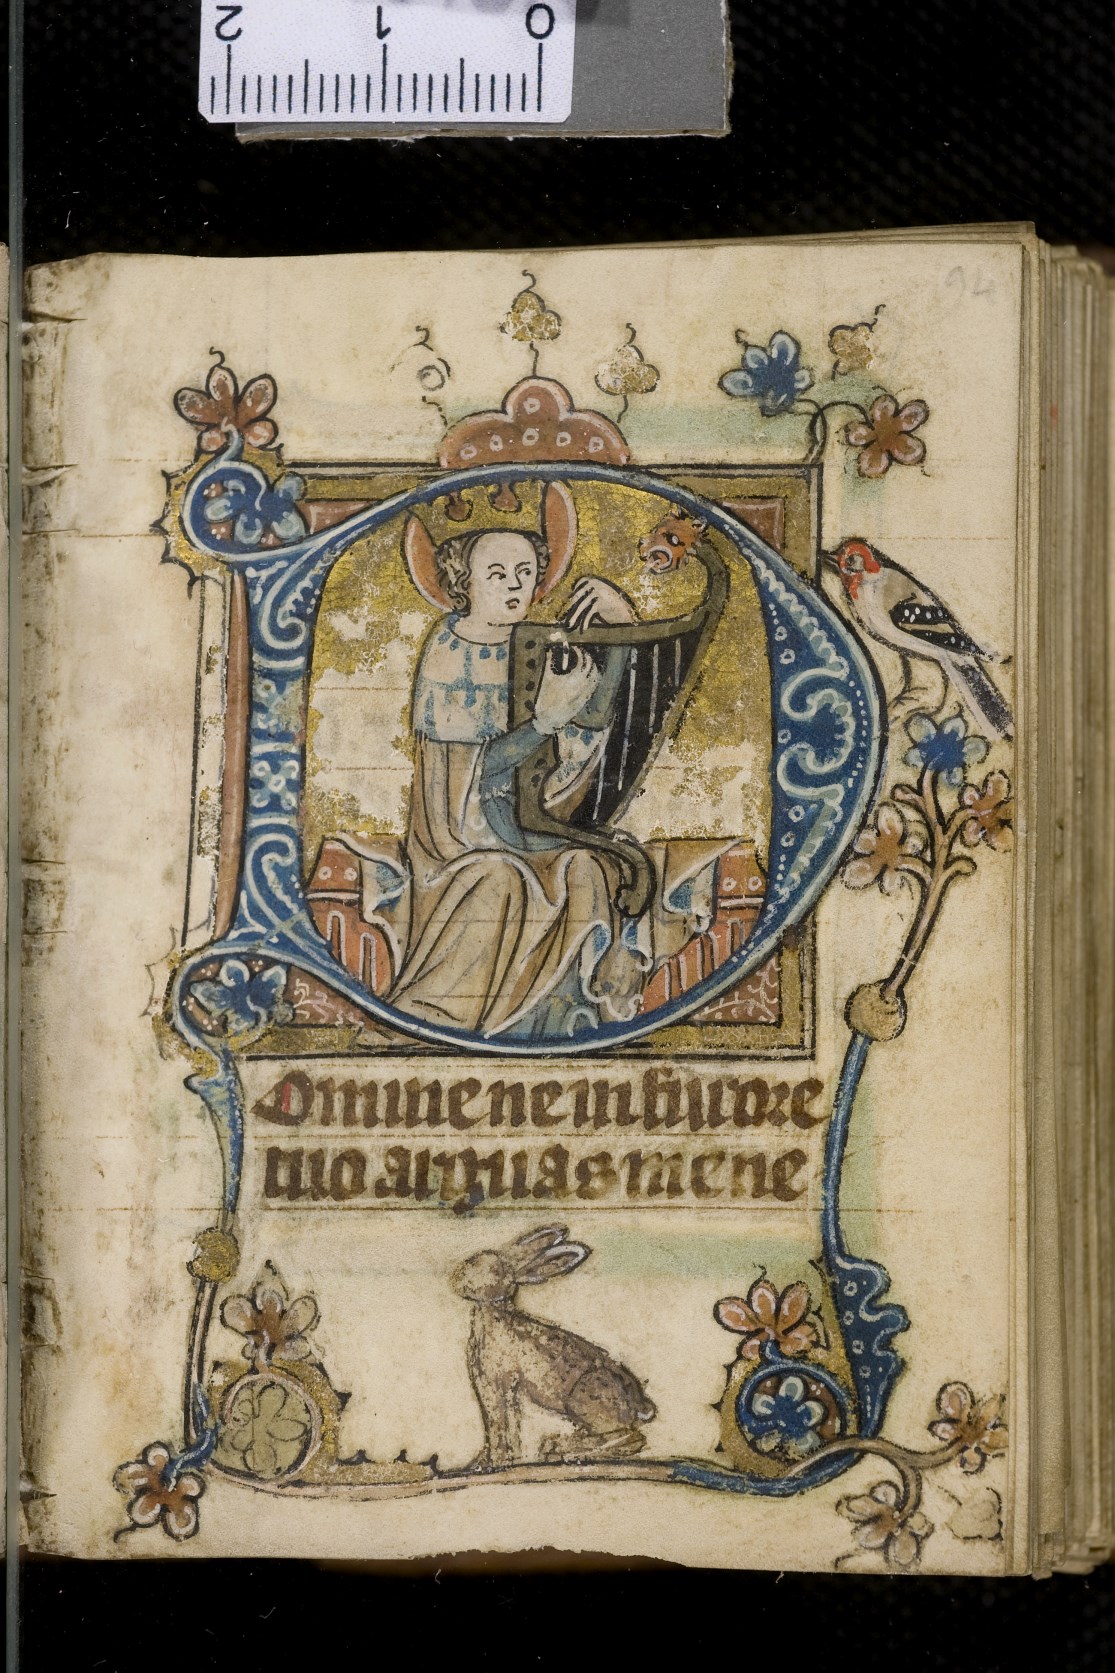 2 1 0
94
Domine ne in furore
tuo arguas me ne